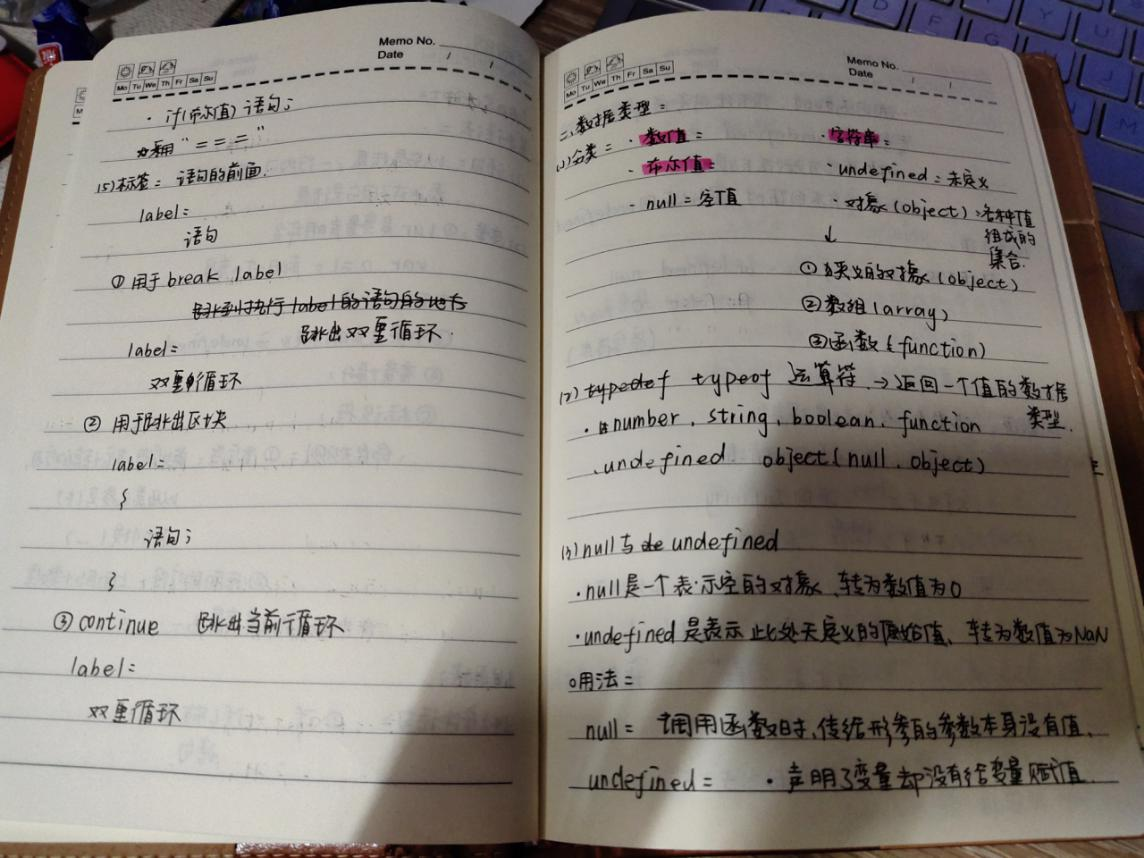 Memo No.
Date / /
Mo Tu We Th Fr Sa Su
· if(布尔值) 语句;
用"==="
(5)标签: 语句的前面.
label:
语句
① 用于break label
跳到执行label的语句的地方
跳出双重循环.
label:
双重循环
② 用于跳出区块
label:
{
语句;
}
③ continue 跳出当前循环
label:
双重循环
Memo No.
Date / /
Mo Tu We Th Fr Sa Su
二、数据类型:
(1)分类: · 数值: · 字符串:
· 布尔值: · undefined:未定义
· null:空值 · 对象(object):各种值
组成的
集合.
↓
① 狭义的对象(object)
② 数组(array)
③ 函数(function)
(2) typedef typeof 运算符 → 返回一个值的数据
类型.
· number、string、boolean、function
、undefined object(null、object)
(3) null与 undefined
· null是一个表示空的对象、转为数值为0
· undefined是表示此处无定义的原始值、转为数值为NaN
o用法:
null: 调用函数时、传给形参的参数本身没有值、
undefined: · 声明了变量却没有给变量赋值.